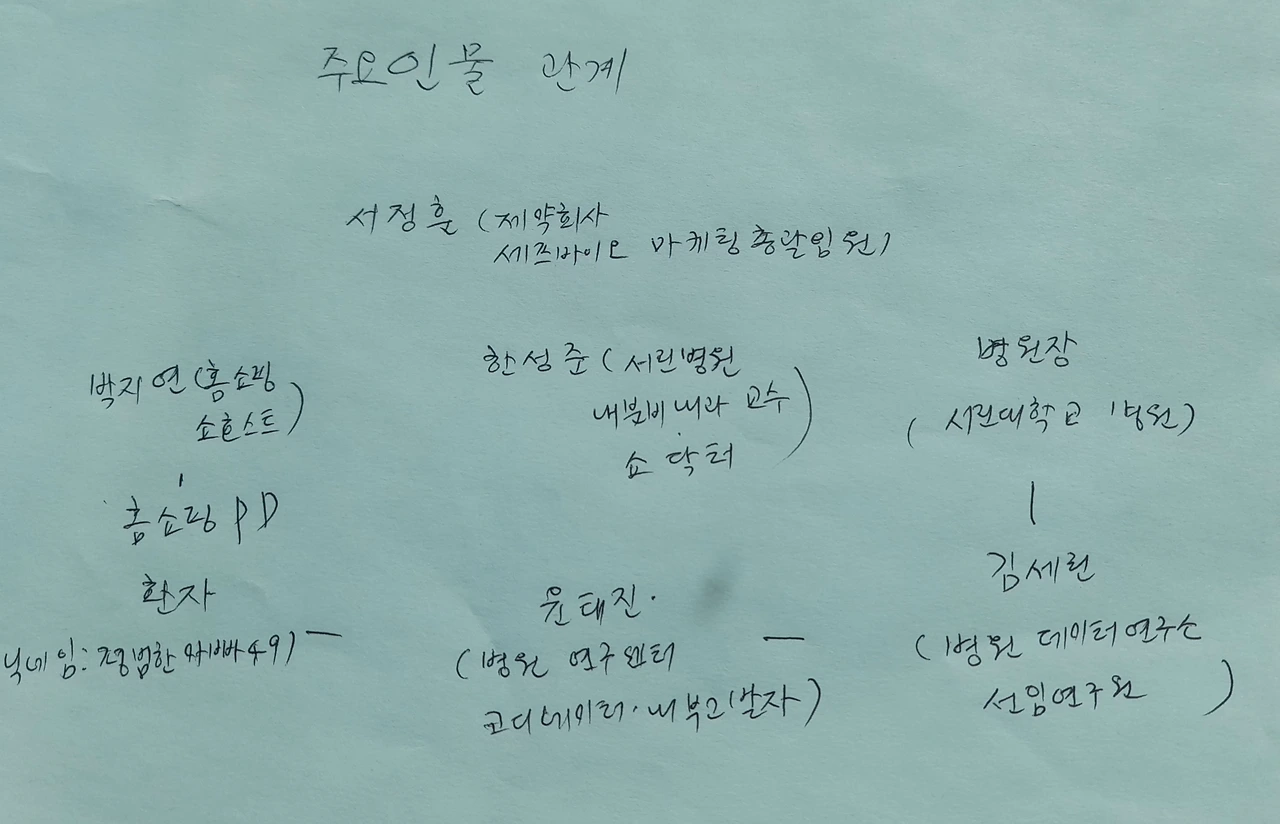 주요인물 관계
서정훈 (제약회사
세즈바이오 마케팅총괄임원)
박지연(홈쇼핑
쇼호스트)
홈쇼핑 PD
한성준 (서린병원
내분비내과 교수
쇼닥터)
병원장
(서린대학교 병원)
환자
닉네임: 평범한아빠49) —
윤태진.
(병원 연구센터
코디네이터·내부고발자)
—
김세린
(병원 데이터연구소
선임연구원)